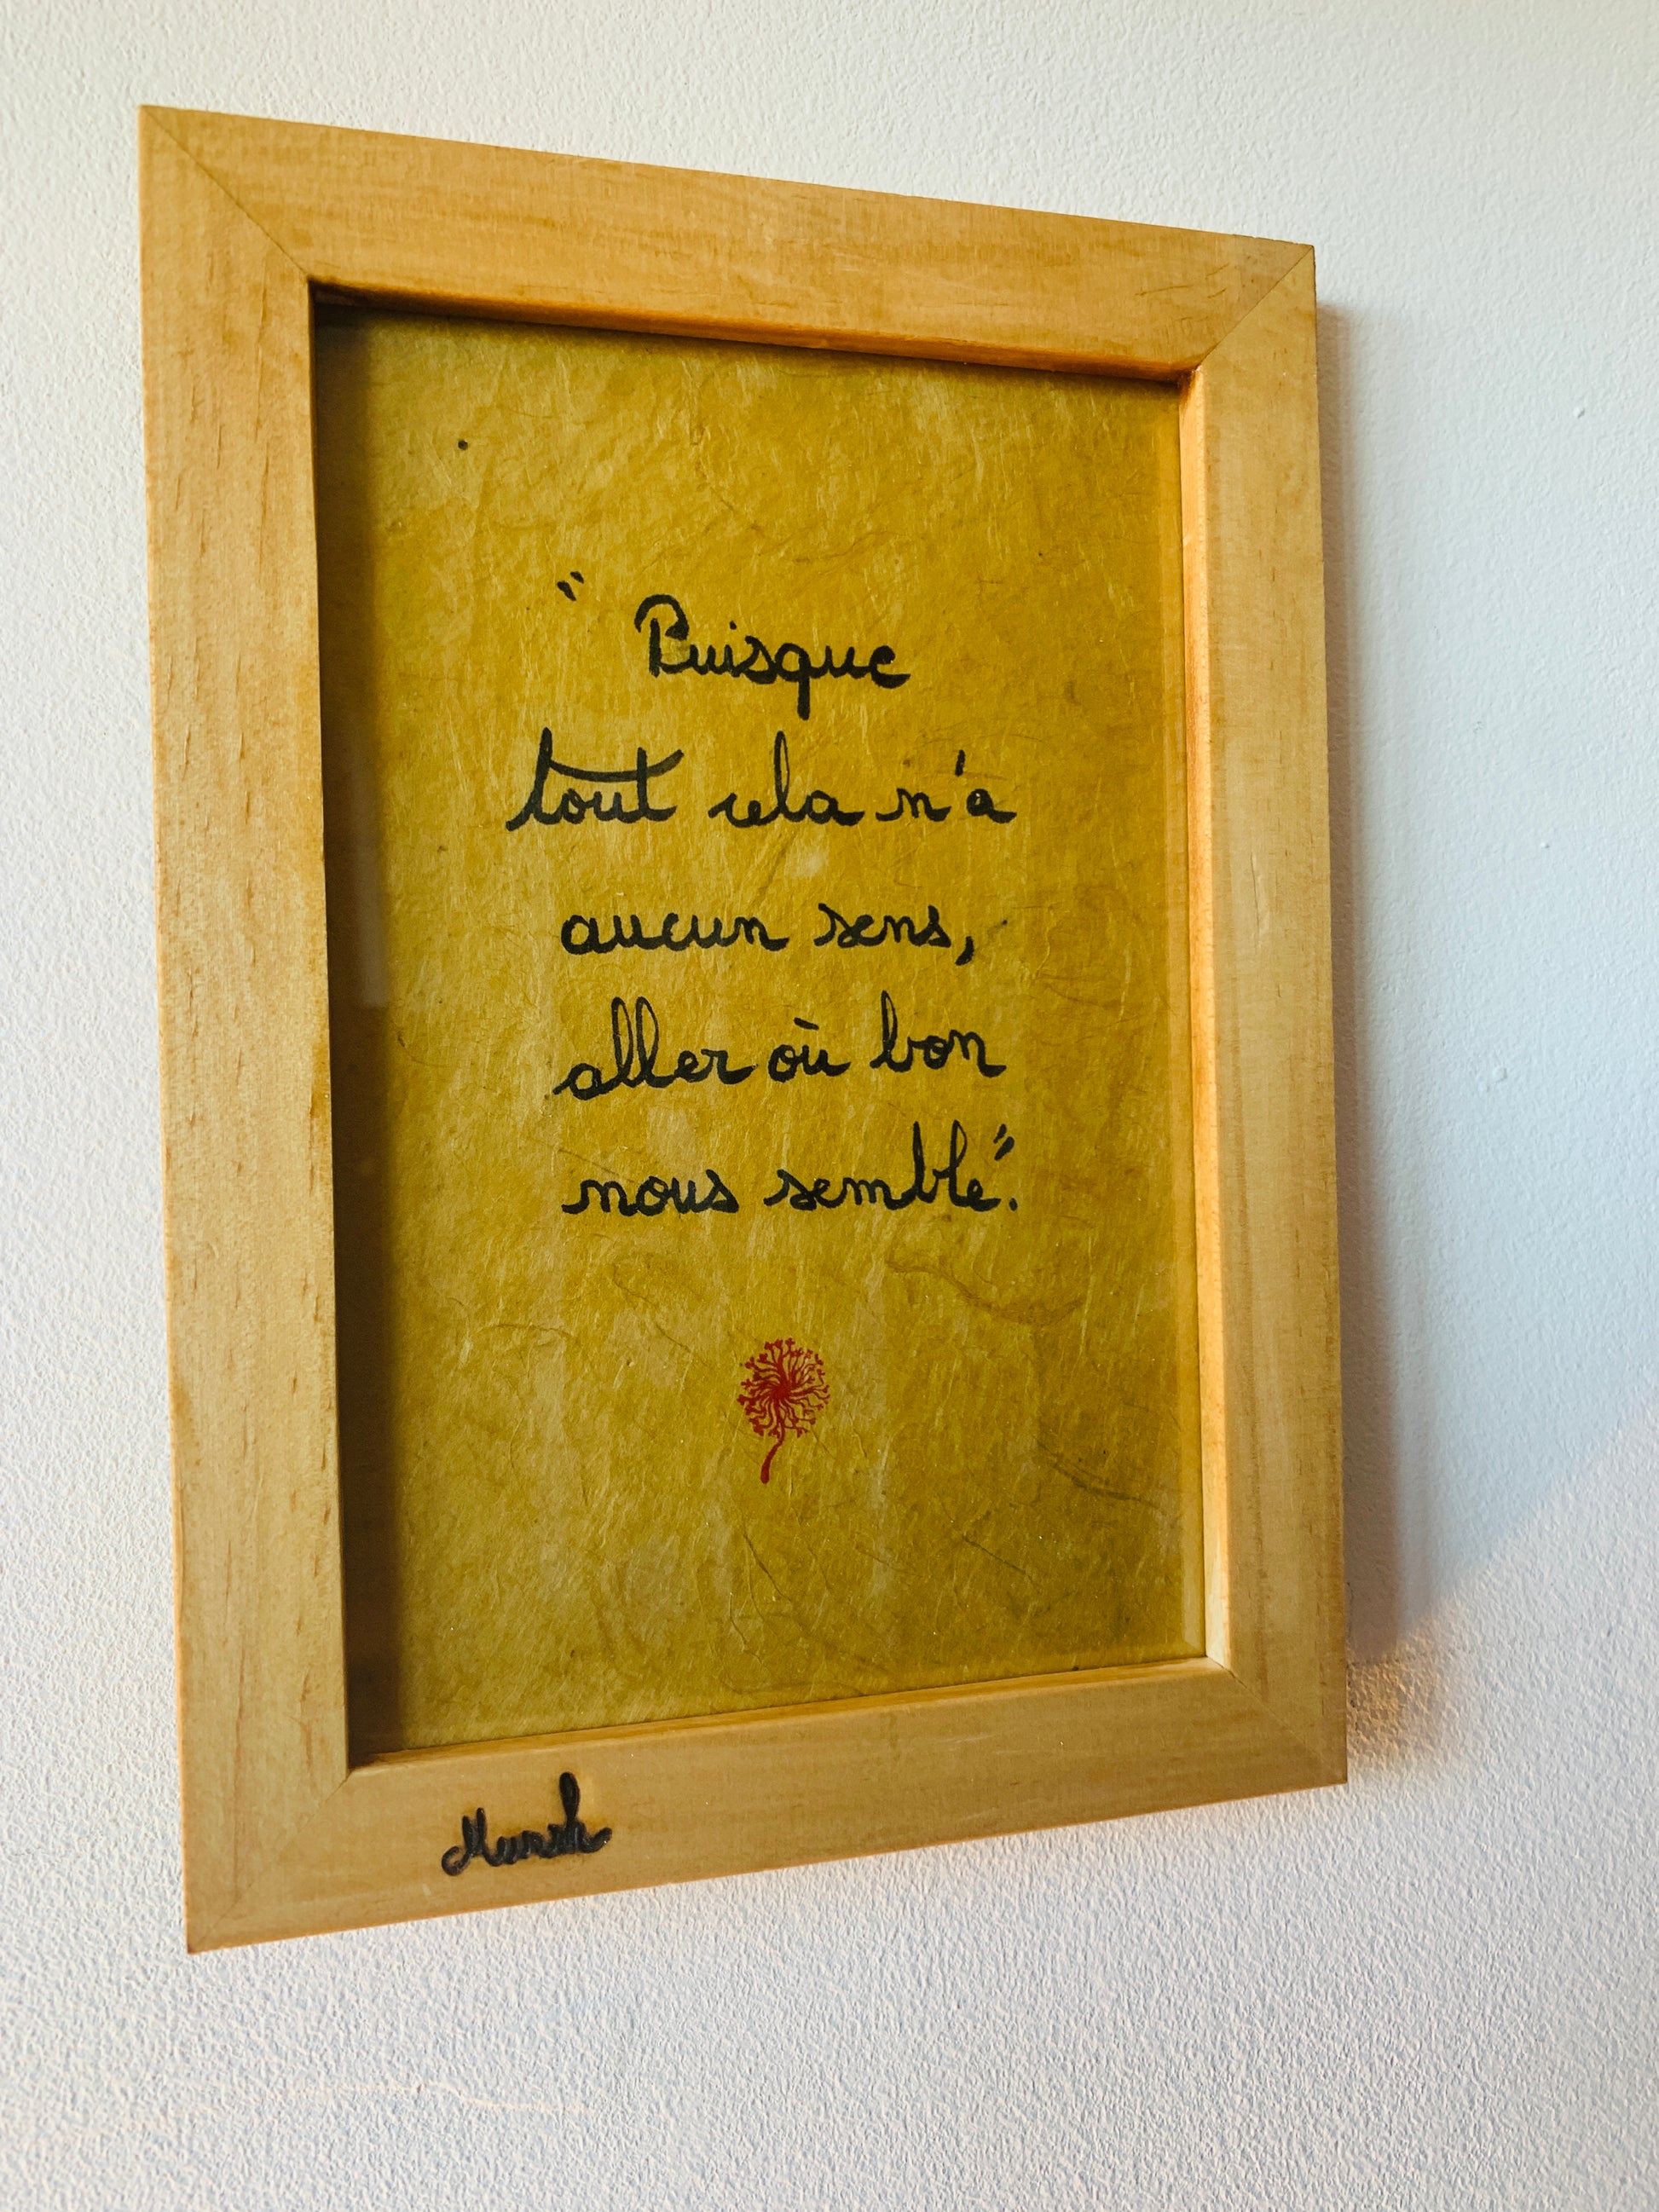 " Puisque
tout cela n'a
aucun sens,
aller où bon
nous semble".